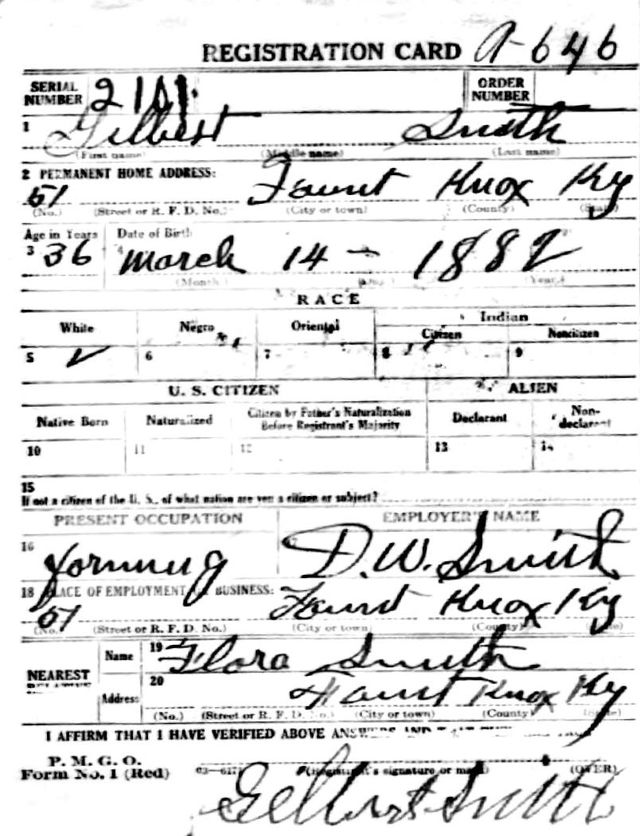 REGISTRATION CARD A-646
SERIAL NUMBER 2101 ORDER NUMBER
1 Gilbert Smith
(First name) (Middle name) (Last name)
2 PERMANENT HOME ADDRESS:
51 Faust Knox Ky
(No.) (Street or R. F. D. No.) (City or town) (County) (State)
Age in Years Date of Birth
3 36 4 March 14 - 1882
(Month) (Day) (Year)
RACE
White Negro Oriental Indian
Citizen Noncitizen
5 ✓ 6 7 8 9
U. S. CITIZEN ALIEN
Native Born Naturalized Citizen by Father's Naturalization Before Registrant's Majority Declarant Non-declarant
10 11 12 13 14
15
If not a citizen of the U. S., of what nation are you a citizen or subject?
PRESENT OCCUPATION EMPLOYER'S NAME
16 D. W. Smith
18 PLACE OF EMPLOYMENT OR BUSINESS:
51 Faust Knox Ky
(No.) (Street or R. F. D. No.) (City or town) (County) (State)
NEAREST RELATIVE Name 19 Flora Smith
Address 20 Faust Knox Ky
(No.) (Street or R. F. D. No.) (City or town) (County) (State)
I AFFIRM THAT I HAVE VERIFIED ABOVE ANSWERS AND THAT THEY
P. M. G. O.
Form No. 1 (Red) 03-6171 (Registrant's signature or mark) (OVER)
Gilbert Smith